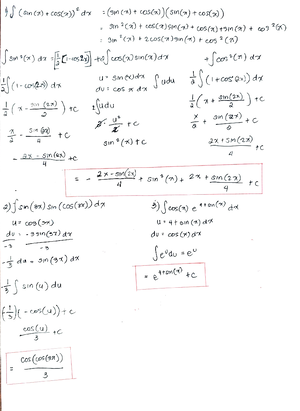 ∫ (sin(x)+cos(x))² dx = (sin(x)+cos(x))(sin(x)+cos(x))
= sin²(x) + cos(x)sin(x) + cos(x)sin(x) + cos²(x)
= sin²(x) + 2cos(x)sin(x) + cos²(x)
∫ sin²(x) dx = [½[1-cos2x]] +2∫cos(x)sin(x) dx + ∫cos²(x) dx
½∫(1-cos(2x)) dx
u = sin(x)dx
du = cos x dx
∫udu
½∫(1+cos(2x)) dx
½(x - sin(2x)/2) +c
2∫udu
½(x + sin(2x)/2) +c
x/2 - sin(2x)/4 +c
2 · u²/2 +c
x/2 + sin(2x)/4 +c
sin²(x) +c
= 2x - sin(2x)/4 +c
2x + sin(2x)/4 +c
= - 2x - sin(2x)/4 + sin²(x) + 2x + sin(2x)/4 +c
2) ∫ sin(3x) sin(cos(3x)) dx
u = cos(3x)
du = -3sin(3x) dx
-3 -3
-⅓ du = sin(3x) dx
-⅓ ∫ sin(u) du
(-⅓)(-cos(u)) + c
cos(u)/3 +c
= cos(cos(3x))/3
3) ∫ cos(x) e^(4+sin(x)) dx
u = 4+sin(x) dx
du = cos(x) dx
∫e^u du = e^u
= e^(4+sin(x)) +c